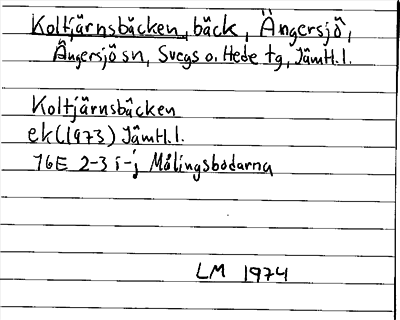 Koltjärnsbäcken, bäck, Ängersjö,
Ängersjö sn, Svegs o. Hede tg, Jämtl.l.
Koltjärnsbäcken
ek (1973) Jämtl.l.
16E 2-3 i-j Målingsbodarna
LM 1974